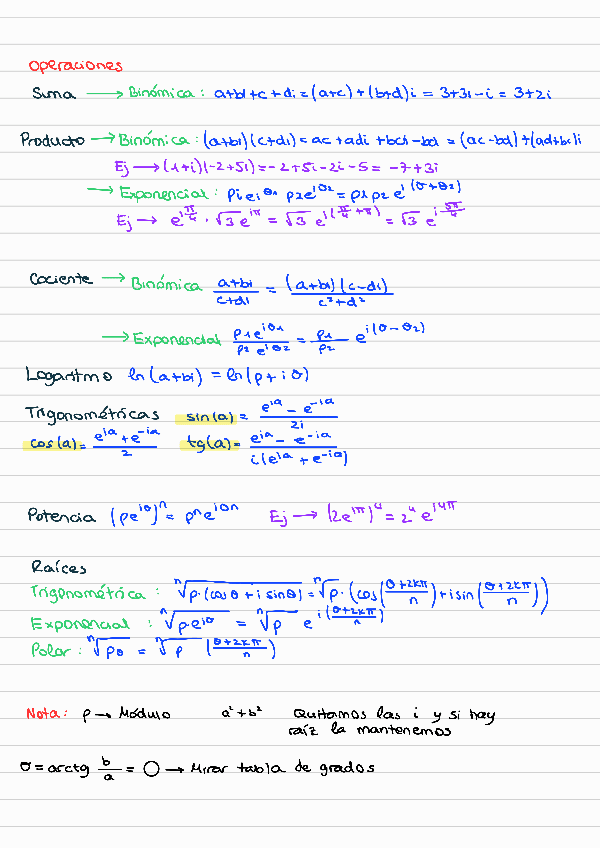 Operaciones
Suma → Binómica: a+bi+c+di=(a+c)+(b+d)i = 3+3i-i = 3+2i
Producto → Binómica: (a+bi)(c+di)=ac+adi+bci-bd=(ac-bd)+(ad+bc)i
Ej → (1+i)(-2+5i)=-2+5i-2i-5=-7+3i
→ Exponencial: ρ₁e^{iθ₁} ρ₂e^{iθ₂}=ρ₁ρ₂e^{i(θ+θ₂)}
Ej → e^{iπ/4} · √3 e^{iπ} = √3 e^{i(π/4+π)} = √3 e^{i5π/4}
Cociente → Binómica (a+bi)/(c+di) = (a+bi)(c-di)/(c²+d²)
→ Exponencial ρ₁e^{iθ₁}/ρ₂e^{iθ₂} = ρ₁/ρ₂ e^{i(θ-θ₂)}
Logaritmo ln(a+bi) = ln(ρ+iθ)
Trigonométricas sin(a) = (e^{ia} - e^{-ia})/2i
cos(a) = (e^{ia}+e^{-ia})/2 tg(a) = (e^{ia} - e^{-ia})/i(e^{ia}+e^{-ia})
Potencia (ρe^{iθ})ⁿ = ρⁿe^{iθn} Ej → (2e^{iπ})⁴ = 2⁴ e^{i4π}
Raíces
Trigonométrica: ⁿ√ρ·(cosθ + i sinθ) = ⁿ√ρ · (cos((θ+2kπ)/n)+i sin((θ+2kπ)/n))
Exponencial: ⁿ√ρ·e^{iθ} = ⁿ√ρ e^{i((θ+2kπ)/n)}
Polar: ⁿ√ρθ = ⁿ√ρ ((θ+2kπ)/n)
Nota: ρ → Módulo a²+b² Quitamos las i y si hay
raíz la mantenemos
θ = arctg b/a = ◯ → Mirar tabla de grados